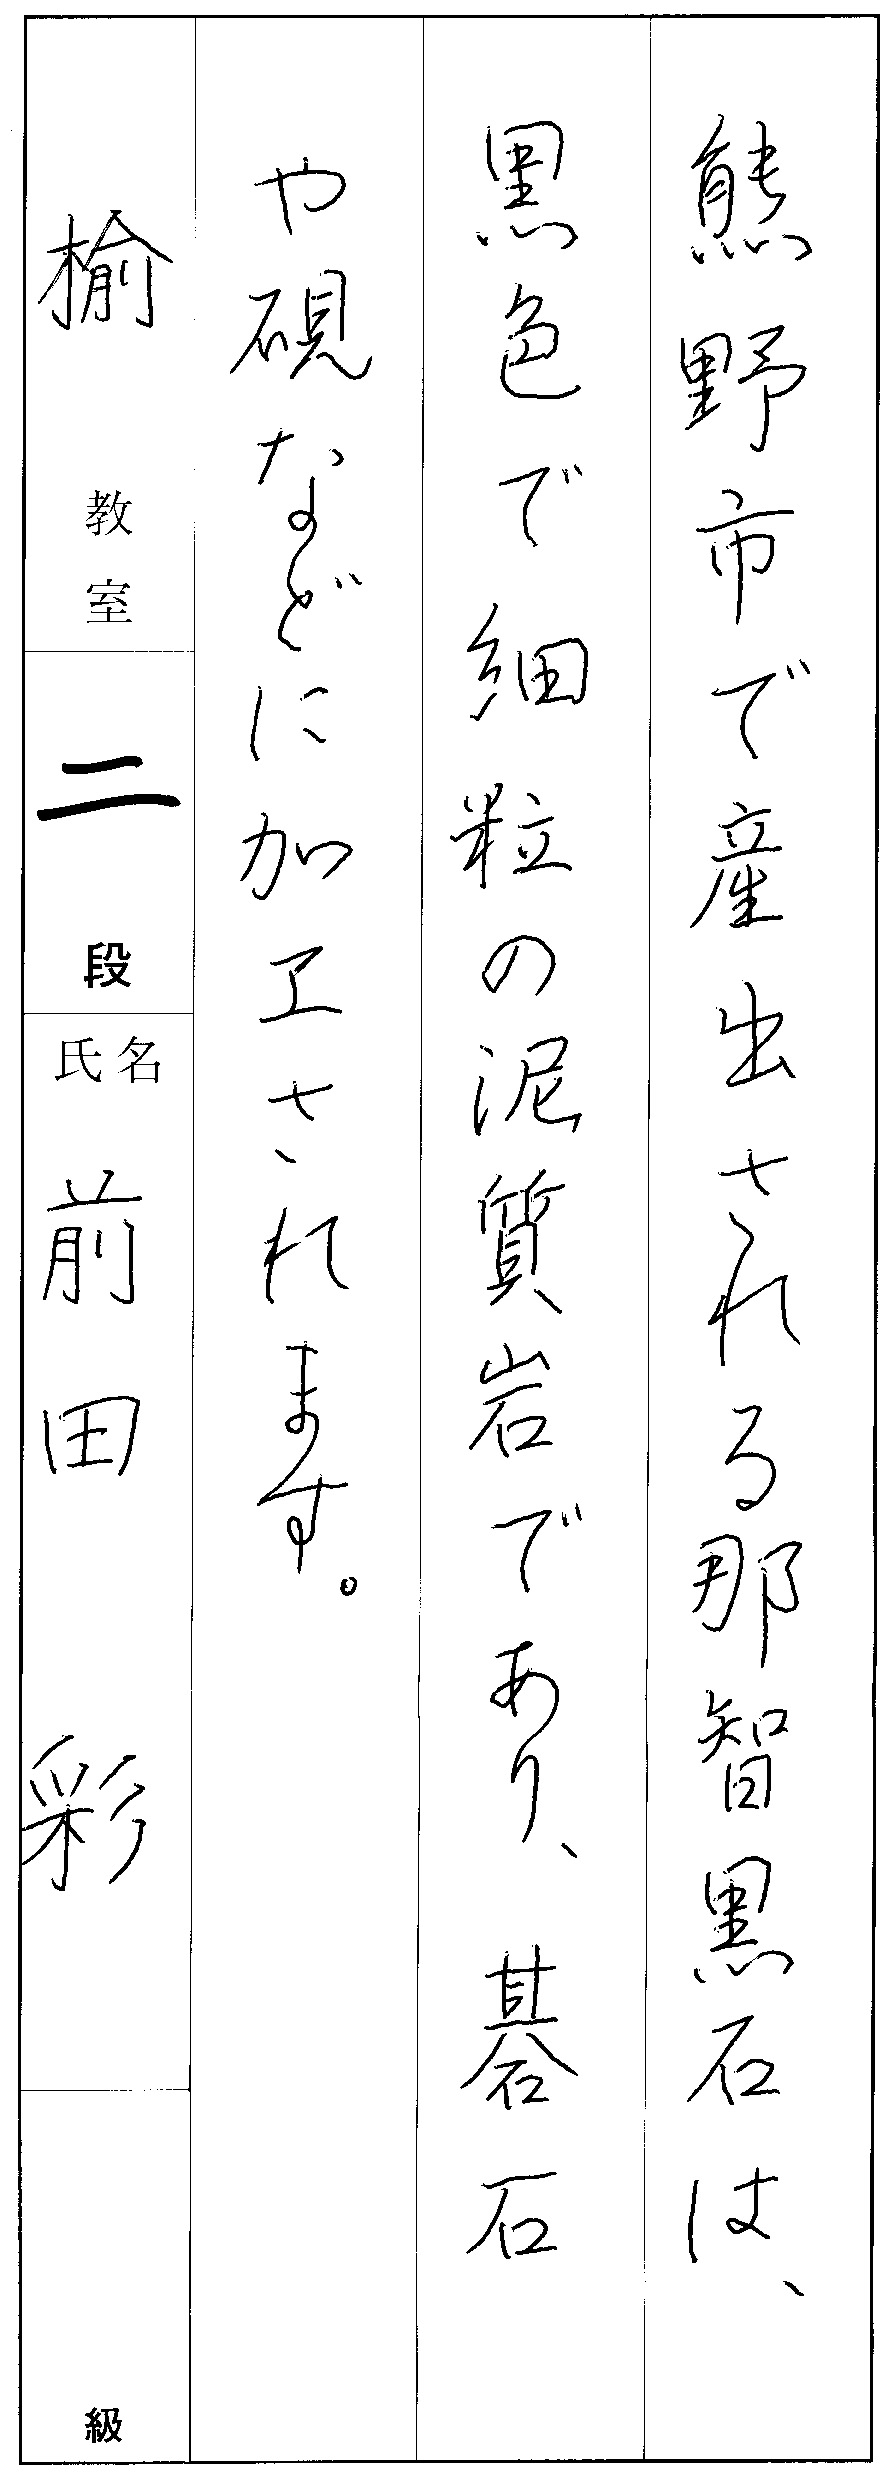 熊野市で産出される那智黒石は、
黒色で細粒の泥質岩であり、碁石
や硯などに加工されます。
楡教室
二段
氏名
前田彩
級